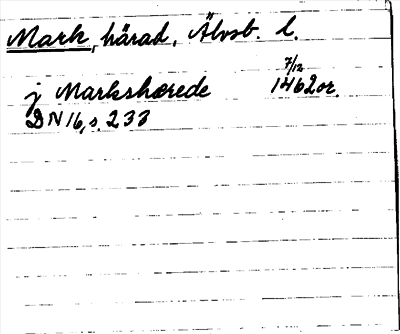 Mark, härad, Älvsb. l.
j Markshærede 7/12 1462 or.
DN 16, s. 233